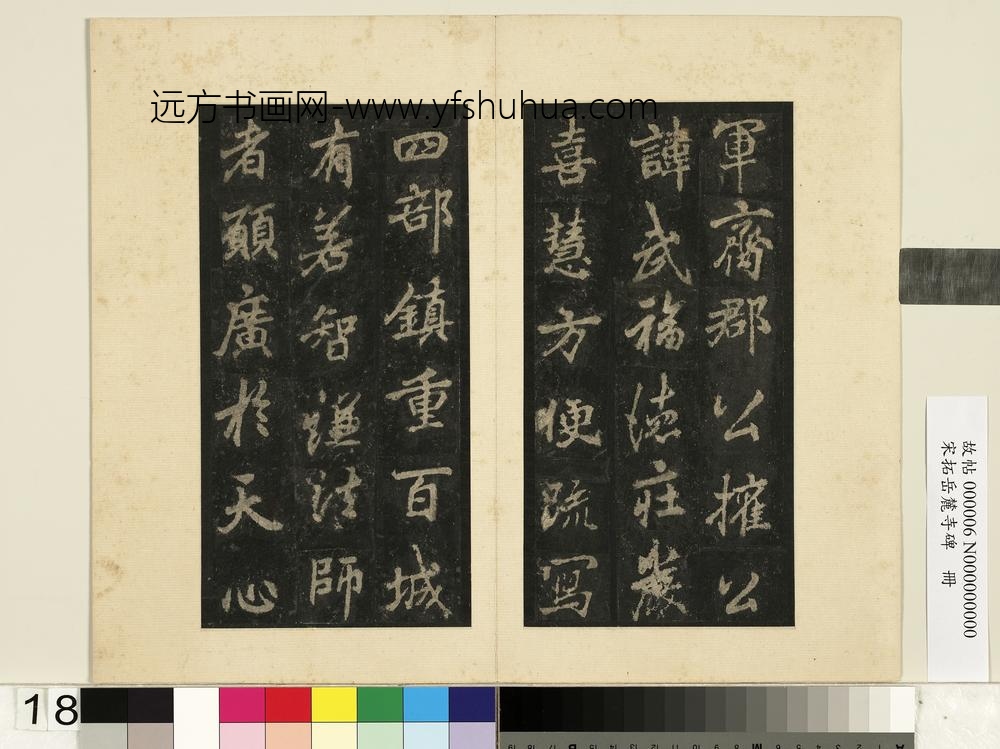 远方书画网-www.yfshuhua.com
軍齊郡公擁公
諱武福德莊嚴
喜慧方便疏寫
四部鎮重百城
有若智謙法師
者願廣於天心
故帖 000006 N000000000
宋拓岳麓寺碑 冊
18